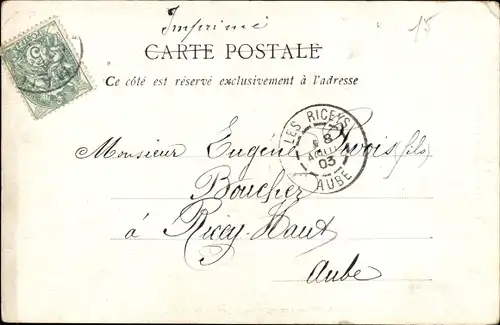 Imprimé
15
CARTE POSTALE
Ce côté est réservé exclusivement à l'adresse
LES RICEYS
8
AOUT
03
AUBE
Monsieur Eugène fils
Boucher
à
Ricey-Haut
Aube